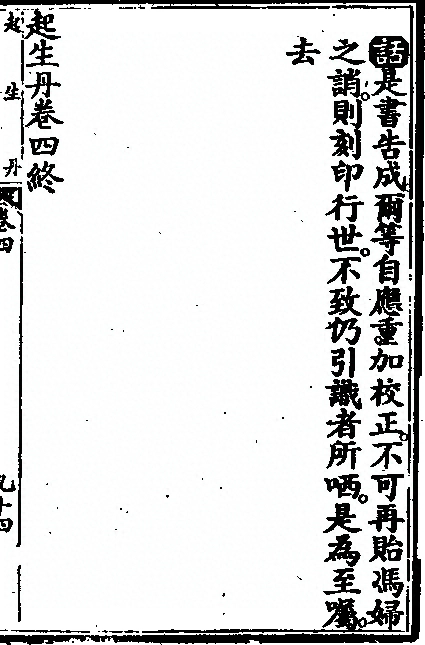 話是書告成爾等自應重加校正。不可再貽馮婦
之誚。則刻印行世。不致仍引識者所哂。是為至囑。
去
起生丹卷四終
起生丹 卷四 九十四